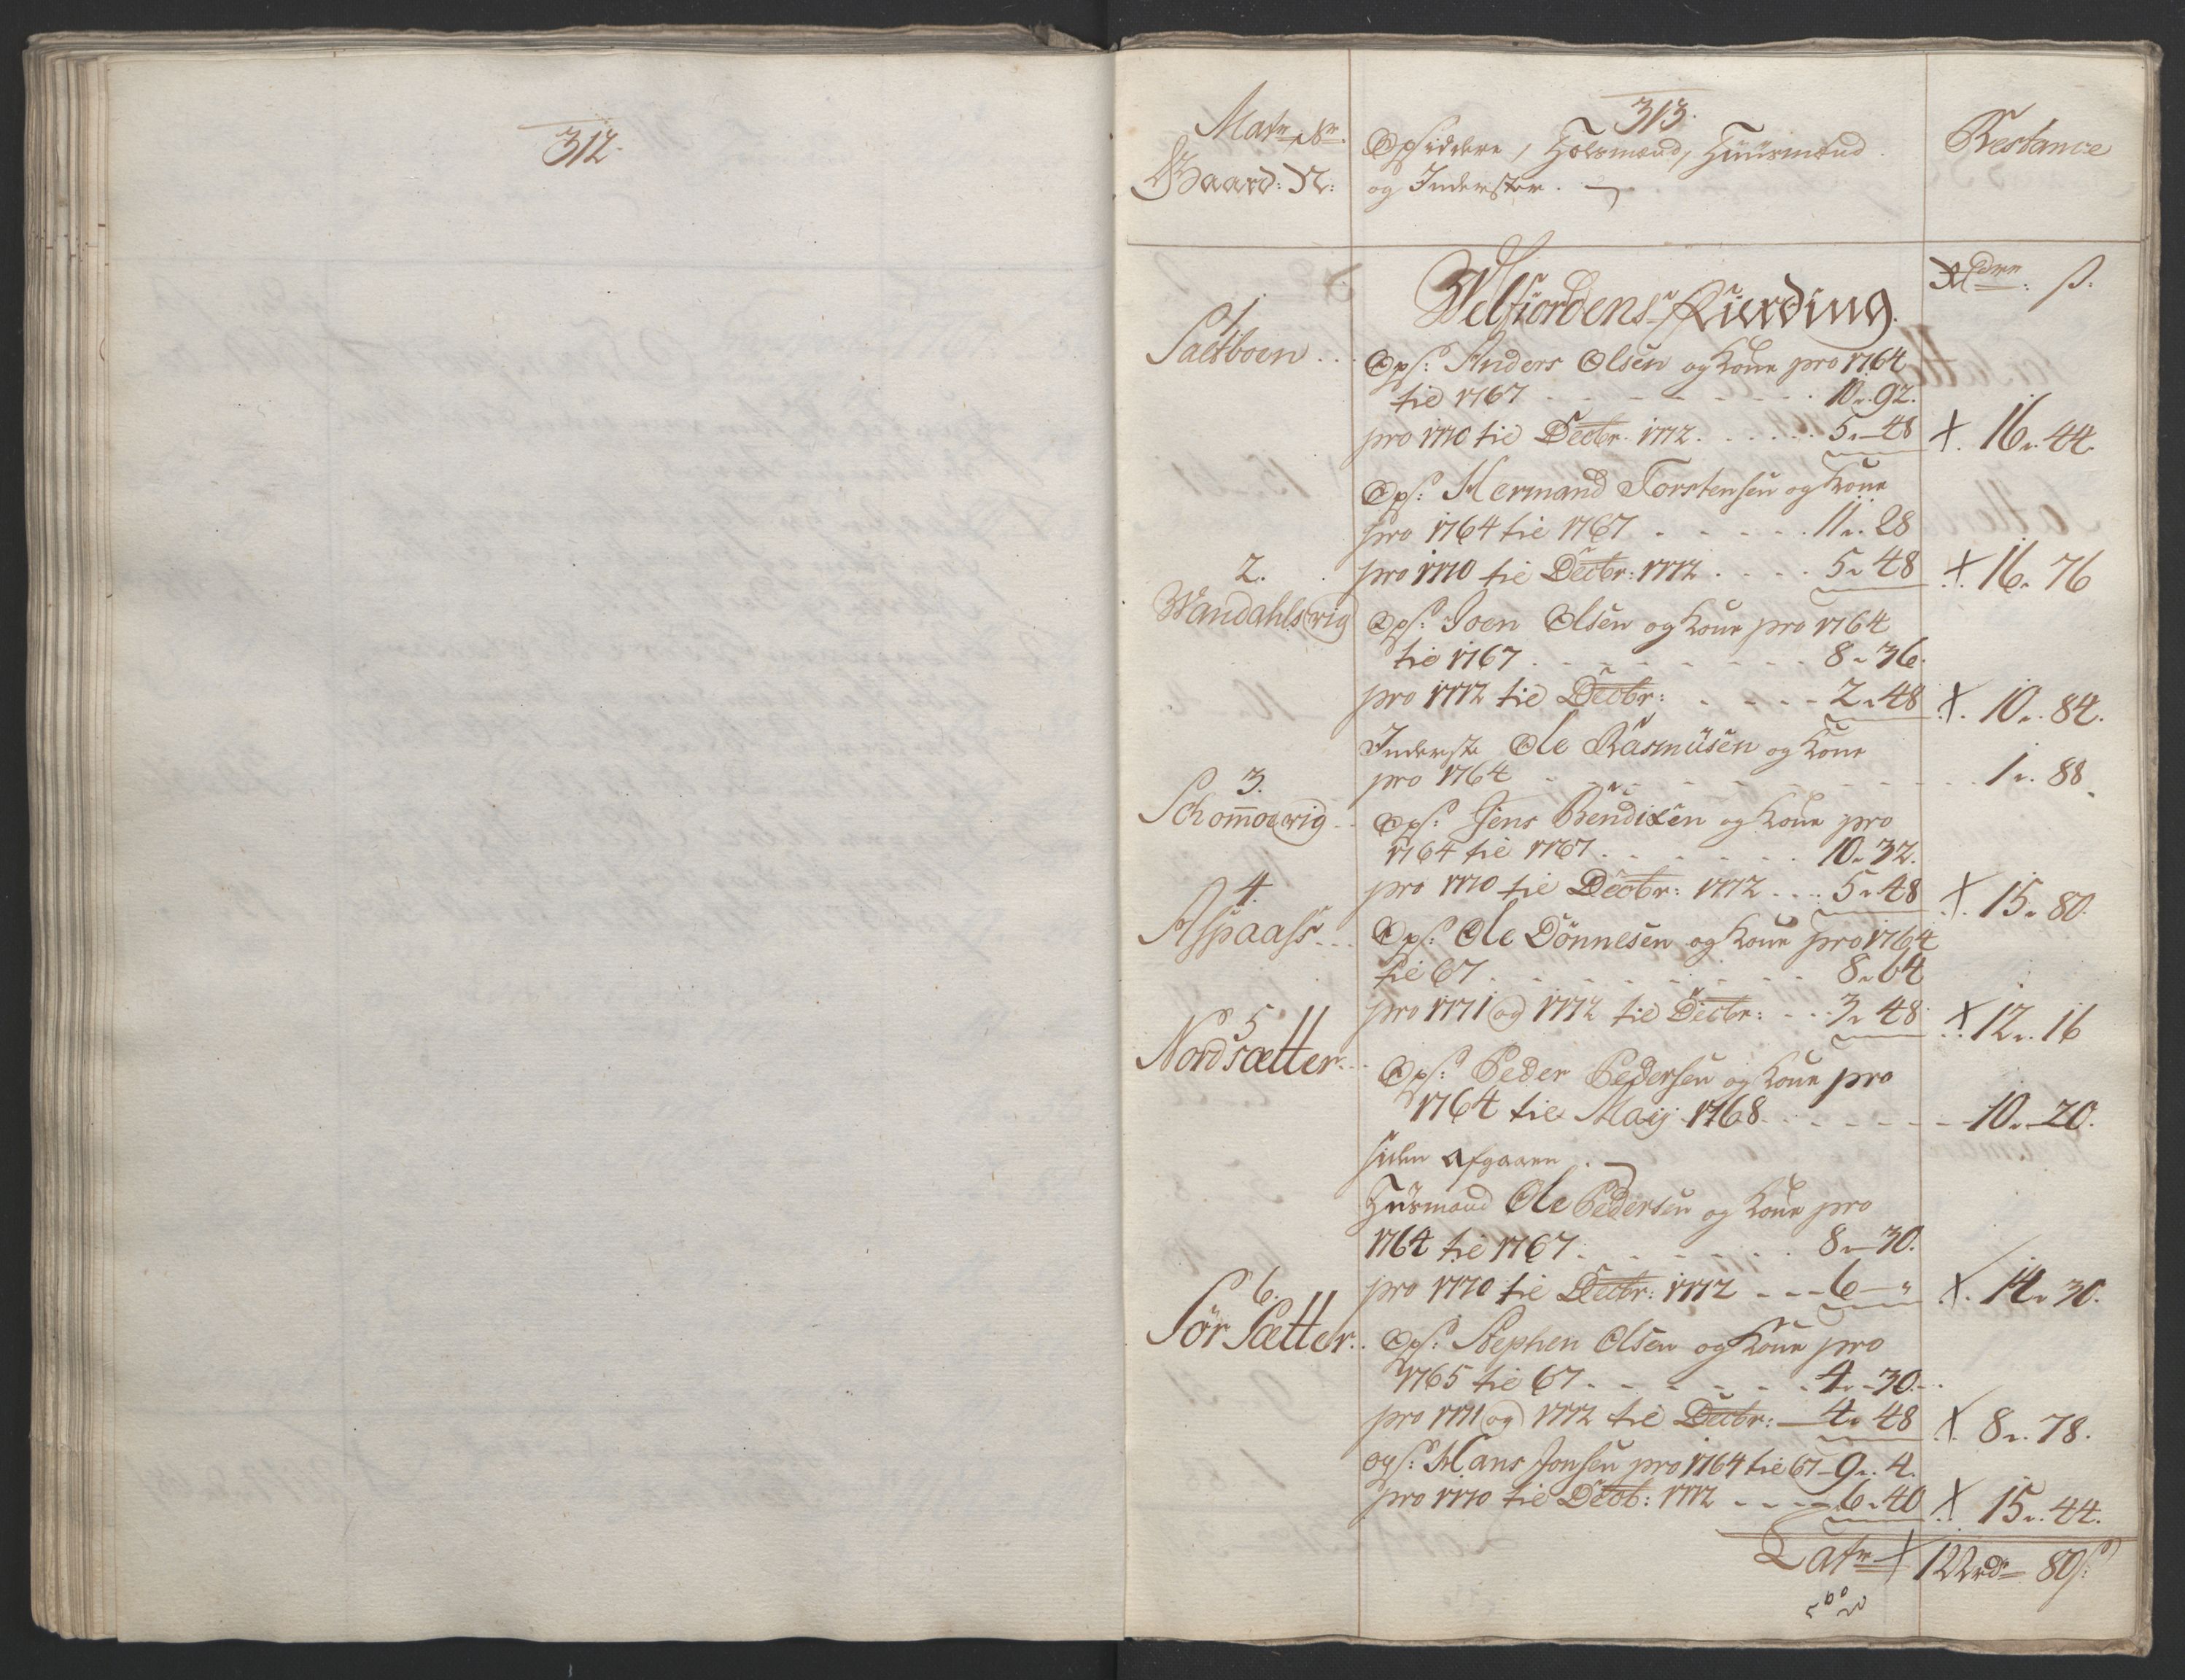 312.
313.
Matr: Nr.
Gaard: N:
Opsiddere, Holsmænd, Huusmænd
og Inderster.
Restance
Rdr. ß:
Welfiordens Fierding.
1.
Saltboen . . .
Ops: Anders Olsen og Kone pro 1764
til 1767 . . . . . . . . 10 „ 92.
pro 1770 til Decbr. 1772 . . . . . 5 „ 48 X. 16 „ 44.
Ops: Hermand Torstensen og Kone
pro 1764 til 1767 . . . . . 11 „ 28
pro 1770 til Decbr: 1772 . . . . 5 „ 48 X. 16 „ 76
2.
Wandahlsvig
Ops: Joen Olsen og Kone pro 1764
til 1767 . . . . . . . . 8 „ 36.
pro 1772 til Decbr: . . . . . 2 „ 48 X. 10 „ 84.
Inderste Ole Rasmusen og Kone
pro 1764 . . . . . . . . 1 „ 88.
3.
Schomoevig . .
Ops: Jens Bendixen og Kone pro
1764 til 1767 . . . . . . 10 „ 32.
pro 1770 til Decbr: 1772 . . . 5 „ 48 X. 15 „ 80.
4.
Aspaass . . .
Ops: Ole Dønnesen og Kone pro 1764
til 67 . . . . . . . . 8 „ 64
pro 1771 og 1772 til Decbr: . . . 3 „ 48 X. 12 „ 16
5
Nordsætter . . .
Ops: Peder Pedersen og Kone pro
1764 til Maij 1768 . . . . . . 10 „ 20.
siden afgaaen .
Huusmand Ole Pedersen og Kone pro
1764 til 1767 . . . . . . 8 „ 30.
pro 1770 til Decbr: 1772 - - - 6 - „ X. 14 „ 30.
6.
Sør Sætter . .
Ops: Stephen Olsen og Kone pro
1765 til 67 . . . . . . . 4 „ 30.
pro 1771 og 1772 til Decbr: 4 „ 48 X. 8 „ 78.
Ops: Hans Jonsen pro 1764 til 67 - 9 „ 4.
pro 1770 til Decb: 1772 - - - 6 „ 40 X. 15 „ 44.
Latr X 122 rdr 80 ß: